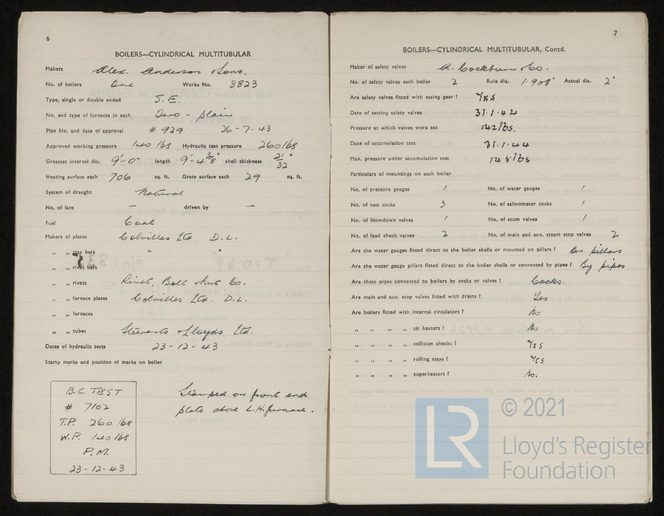 6
BOILERS—CYLINDRICAL MULTITUBULAR
Makers Alex. Anderson & Sons.
No. of boilers One Works No. 3823
Type, single or double ended S.E.
No. and type of furnaces in each Two - plain
Plan No. and date of approval # 929 26-7-43
Approved working pressure 140 lbs Hydraulic test pressure 260 lbs
Greatest internal dia. 9'-0" length 9'-4 3/8" shell thickness 21/32"
Heating surface each 706 sq. ft. Grate surface each 29 sq. ft.
System of draught Natural
No. of fans — driven by —
Fuel Coal
Makers of plates Colvilles Ltd D.L.
„ „ stay bars " "
„ „ rivet bars
„ „ rivets Rivet, Bolt & Nut Co.
„ „ furnace plates Colvilles Ltd. D.L.
„ „ furnaces
„ „ tubes Stewarts & Lloyds Ltd.
Dates of hydraulic tests 23-12-43
Stamp marks and position of marks on boiler
B.C TEST
# 7102
T.P. 260 lbs
W.P. 140 lbs
P.M.
23-12-43
Stamped on front end
plate above L.H. furnace.
7
BOILERS—CYLINDRICAL MULTITUBULAR, Contd.
Maker of safety valves A. Cockburn & Co.
No. of safety valves each boiler 2 Rule dia. 1.908" Actual dia. 2"
Are safety valves fitted with easing gear? Yes
Date of setting safety valves 31.1.44
Pressure at which valves were set 142 lbs.
Date of accumulation test 31.1.44
Max. pressure under accumulation test 145 lbs
Particulars of mountings on each boiler
No. of pressure gauges 1 No. of water gauges 1
No. of test cocks 3 No. of salinometer cocks 1
No. of blowdown valves 1 No. of scum valves 1
No. of feed check valves 2 No. of main and aux. steam stop valves 2
Are the water gauges fitted direct to the boiler shells or mounted on pillars? On pillars
Are the water gauge pillars fitted direct to the boiler shells or connected by pipes? By pipes
Are these pipes connected to boilers by cocks or valves? Cocks.
Are main and aux. stop valves fitted with drains? Yes
Are boilers fitted with internal circulators? No
„ „ „ „ air heaters? No
„ „ „ „ collision chocks? Yes
„ „ „ „ rolling stays? Yes
„ „ „ „ superheaters? No.
LR
© 2021
Lloyd's Register
Foundation